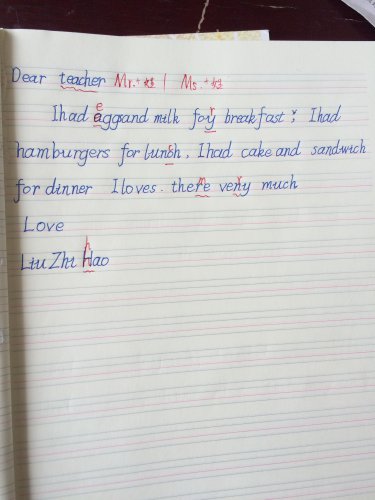 Dear teacher Mr.+姓 | Ms.+姓
e r
I had aggsand milk foy breakfast, I had
hamburgers for lunsh, I had cake and sandwich
m r
for dinner I loves. there veny much
Love
h
Liu Zhi Hao